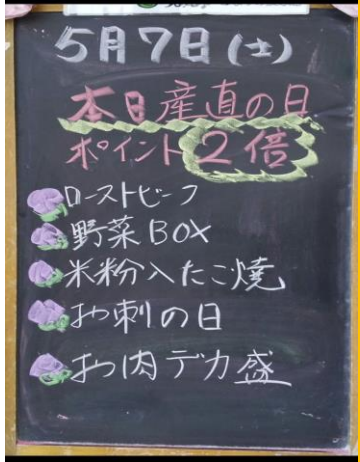 5月7日(土)
本日産直の日
ポイント2倍
ローストビーフ
野菜BOX
米粉入たこ焼
お刺の日
お肉デカ盛